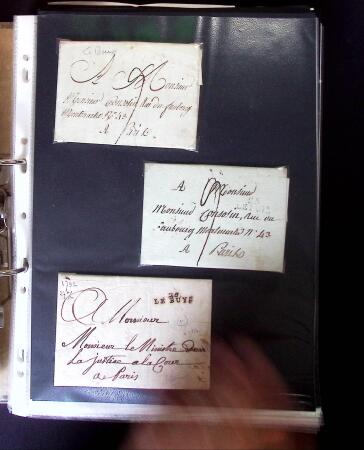 Le Buis
A Monsieur
Monsieur Consolin, Rue du faubourg
Montmartre N° 43
A Paris
A Monsieur
Monsieur Consolin, rue du
faubourg Montmartre N° 43
A Paris
1792
LE BUYS
A Monsieur
Monsieur le Ministre de
La justice a la Cour
a Paris